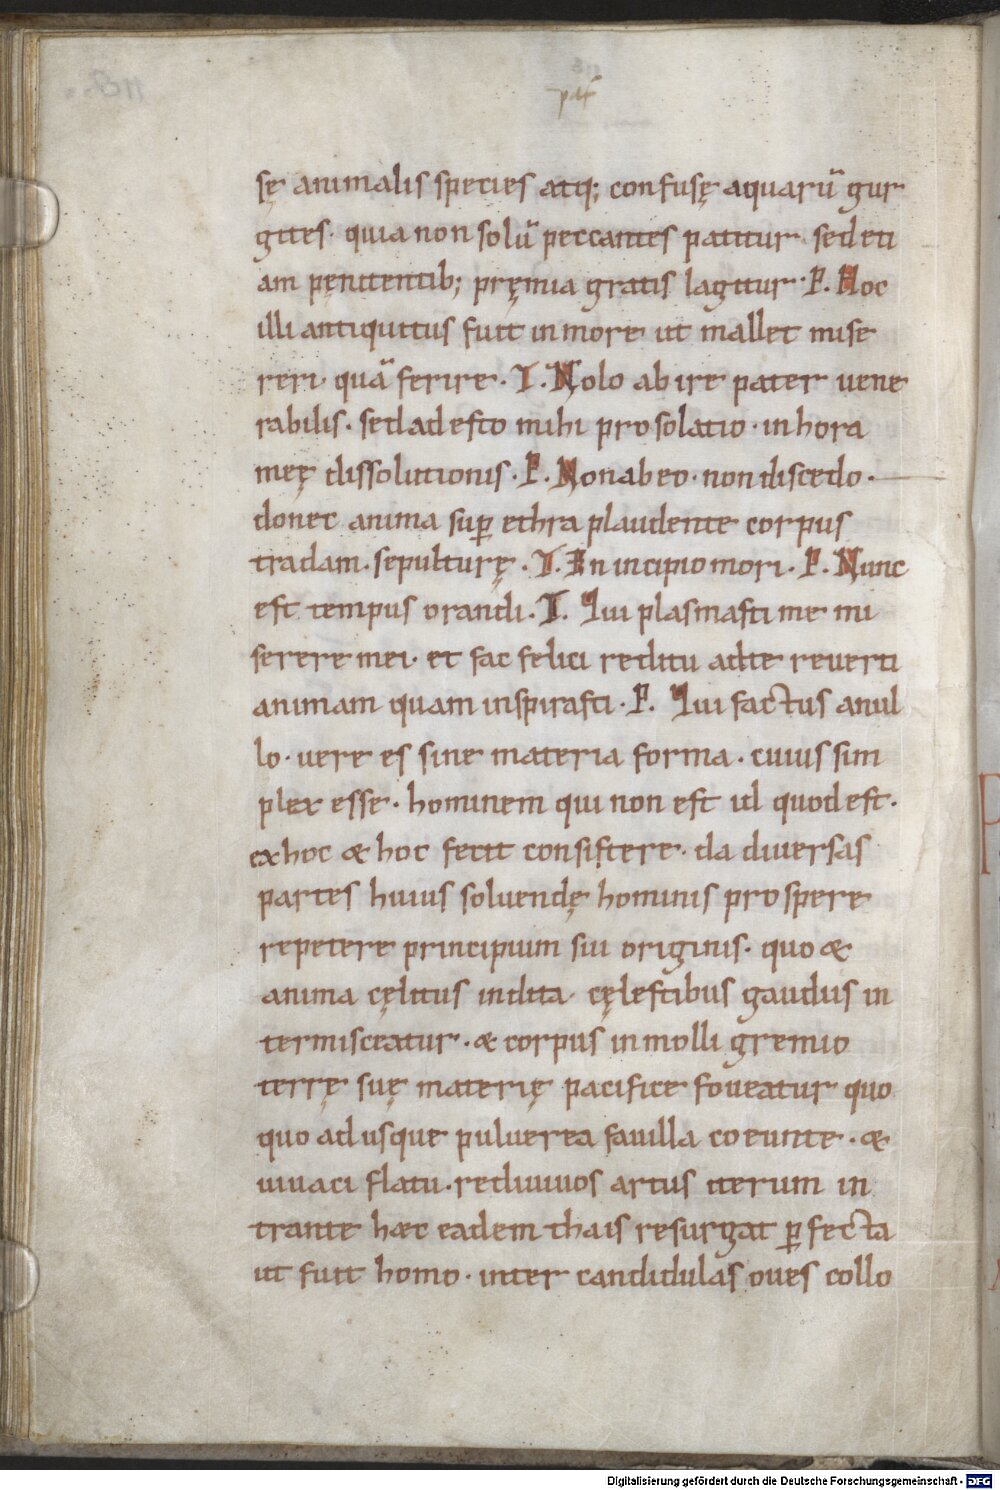 paf
sę animalis species atq; confusę aquarū gur
gites· quia non solū peccantes patitur sed eti
am pęnitentib; pręmia gratis lagitur· P. Hoc
illi antiquitus fuit in more ut mallet mise
reri· quā ferire· T. Nolo abire pater vene
rabilis· sed adesto mihi pro solatio· in hora
meę dissolutionis· P. Non abeo· non discedo·
donec anima sup ethra plaudente corpus
tradam· sepulturę· T. En incipio mori· P. Nunc
est tempus orandi· T. Qui plasmasti me mi
serere mei· et fac felici reditu ad te reverti
animam quam inspirasti· P. Qui factus a nul
lo· vere es sine materia forma· cuius sim
plex esse· hominem qui non est id quod est·
ex hoc & hoc fecit consistere· da diversas
partes huius solvendę hominis prospere
repetere principium sui originis· quo &
anima cęlitus indita· cęlestibus gaudiis in
termisceatur· & corpus in molli gremio
terrę suę materię pacifice foveatur quo
quo adusque pulverea favilla coeunte· &
vivaci flatu· redivivos artus iterum in
trante hæc eadem thais resurgat pfecta
ut fuit homo· inter candidulas oves collo
Digitalisierung gefördert durch die Deutsche Forschungsgemeinschaft - DFG